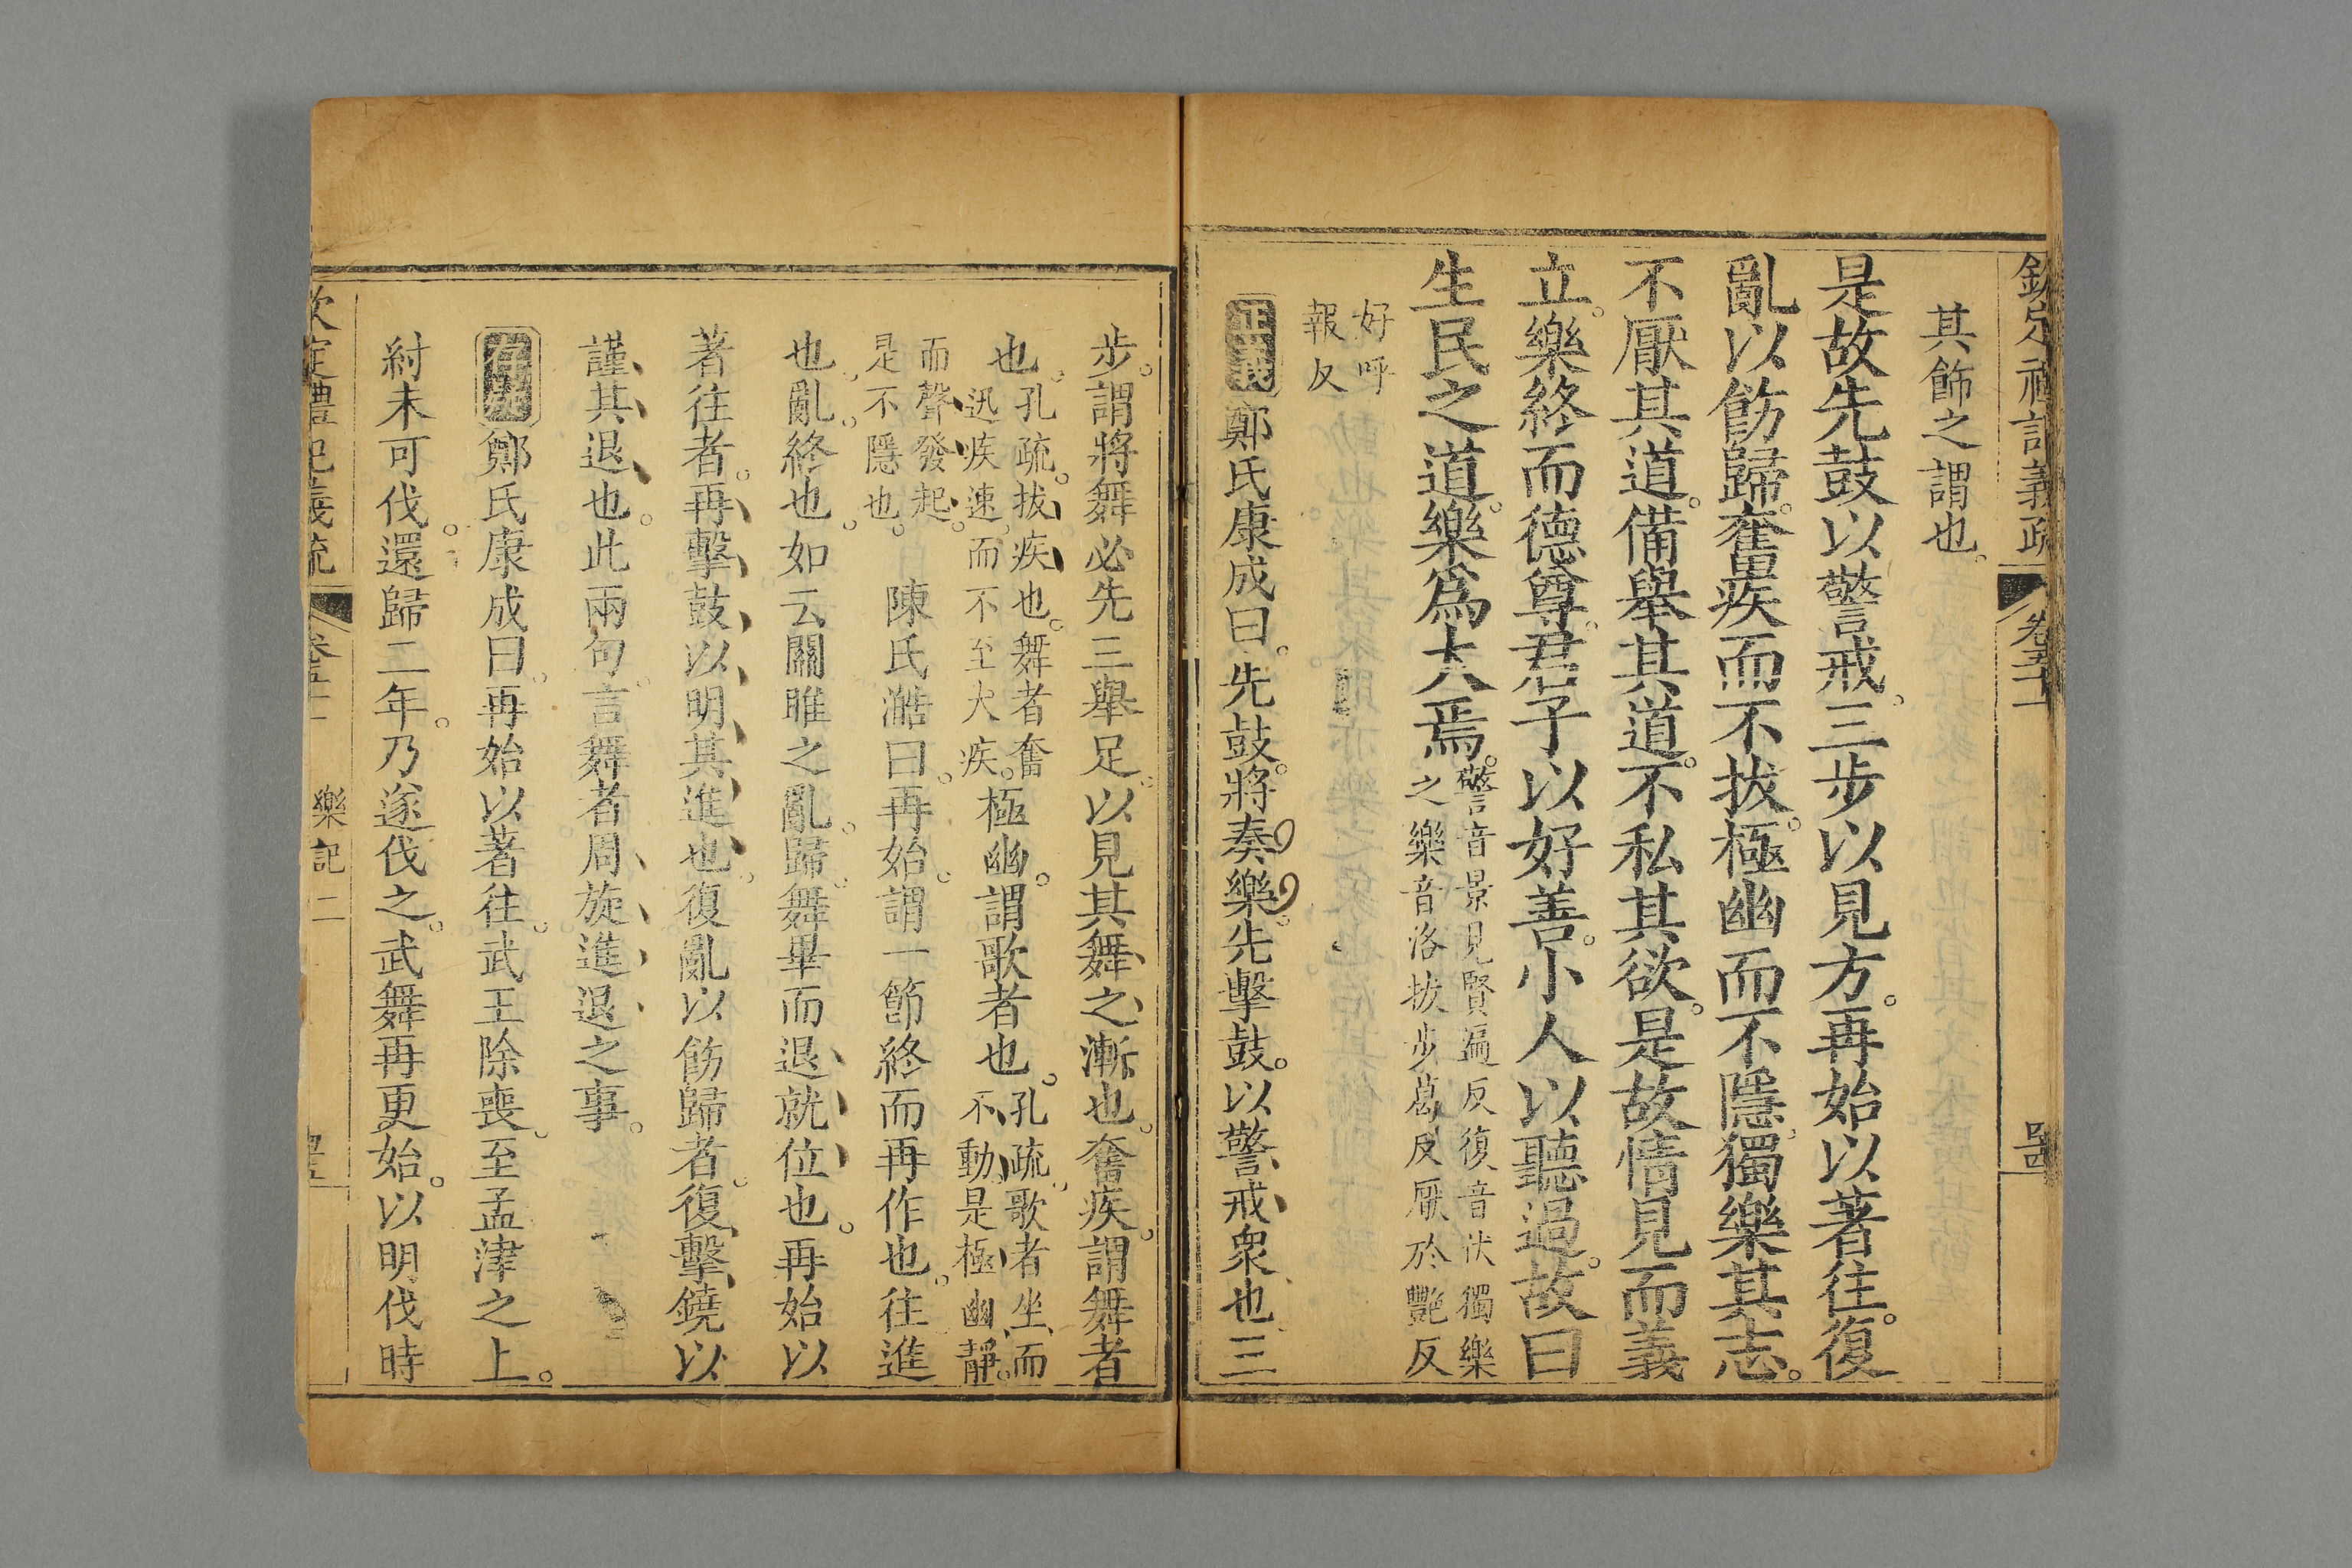 欽定禮記義疏 卷五十一
其飾之謂也。
是故先鼓以警戒。三步以見方。再始以著往。復
亂以飭歸。奮疾而不拔。極幽而不隱。獨樂其志。
不厭其道。備舉其道。不私其欲。是故情見而義
立。樂終而德尊。君子以好善。小人以聽過。故曰
生民之道。樂爲大焉。
警音景見賢遍反復音伏獨樂
之樂音洛拔步葛反厭於艷反
好呼
報反
正義鄭氏康成曰。先鼓。將奏樂。先擊鼓。以警戒衆也。三
步。謂將舞必先三舉足。以見其舞之漸也。奮疾。謂舞者
也。
孔疏。拔疾也。舞者奮
迅疾速。而不至大疾。
極幽。謂歌者也。
孔疏。歌者坐而
不動。是極幽靜。
而聲發起。
是不隱也。
陳氏澔曰。再始。謂一節終而再作也。往進
也。亂。終也。如云關雎之亂。歸。舞畢而退就位也。再始以
著往者。再擊鼓以明其進也。復亂以飭歸者。復擊鐃以
謹其退也。此兩句。言舞者周旋進退之事。
鄭氏康成曰。再始以著往。武王除喪。至孟津之上。
紂未可伐。還歸二年。乃遂伐之。武舞再更始。以明伐時
欽定禮記義疏
樂記二